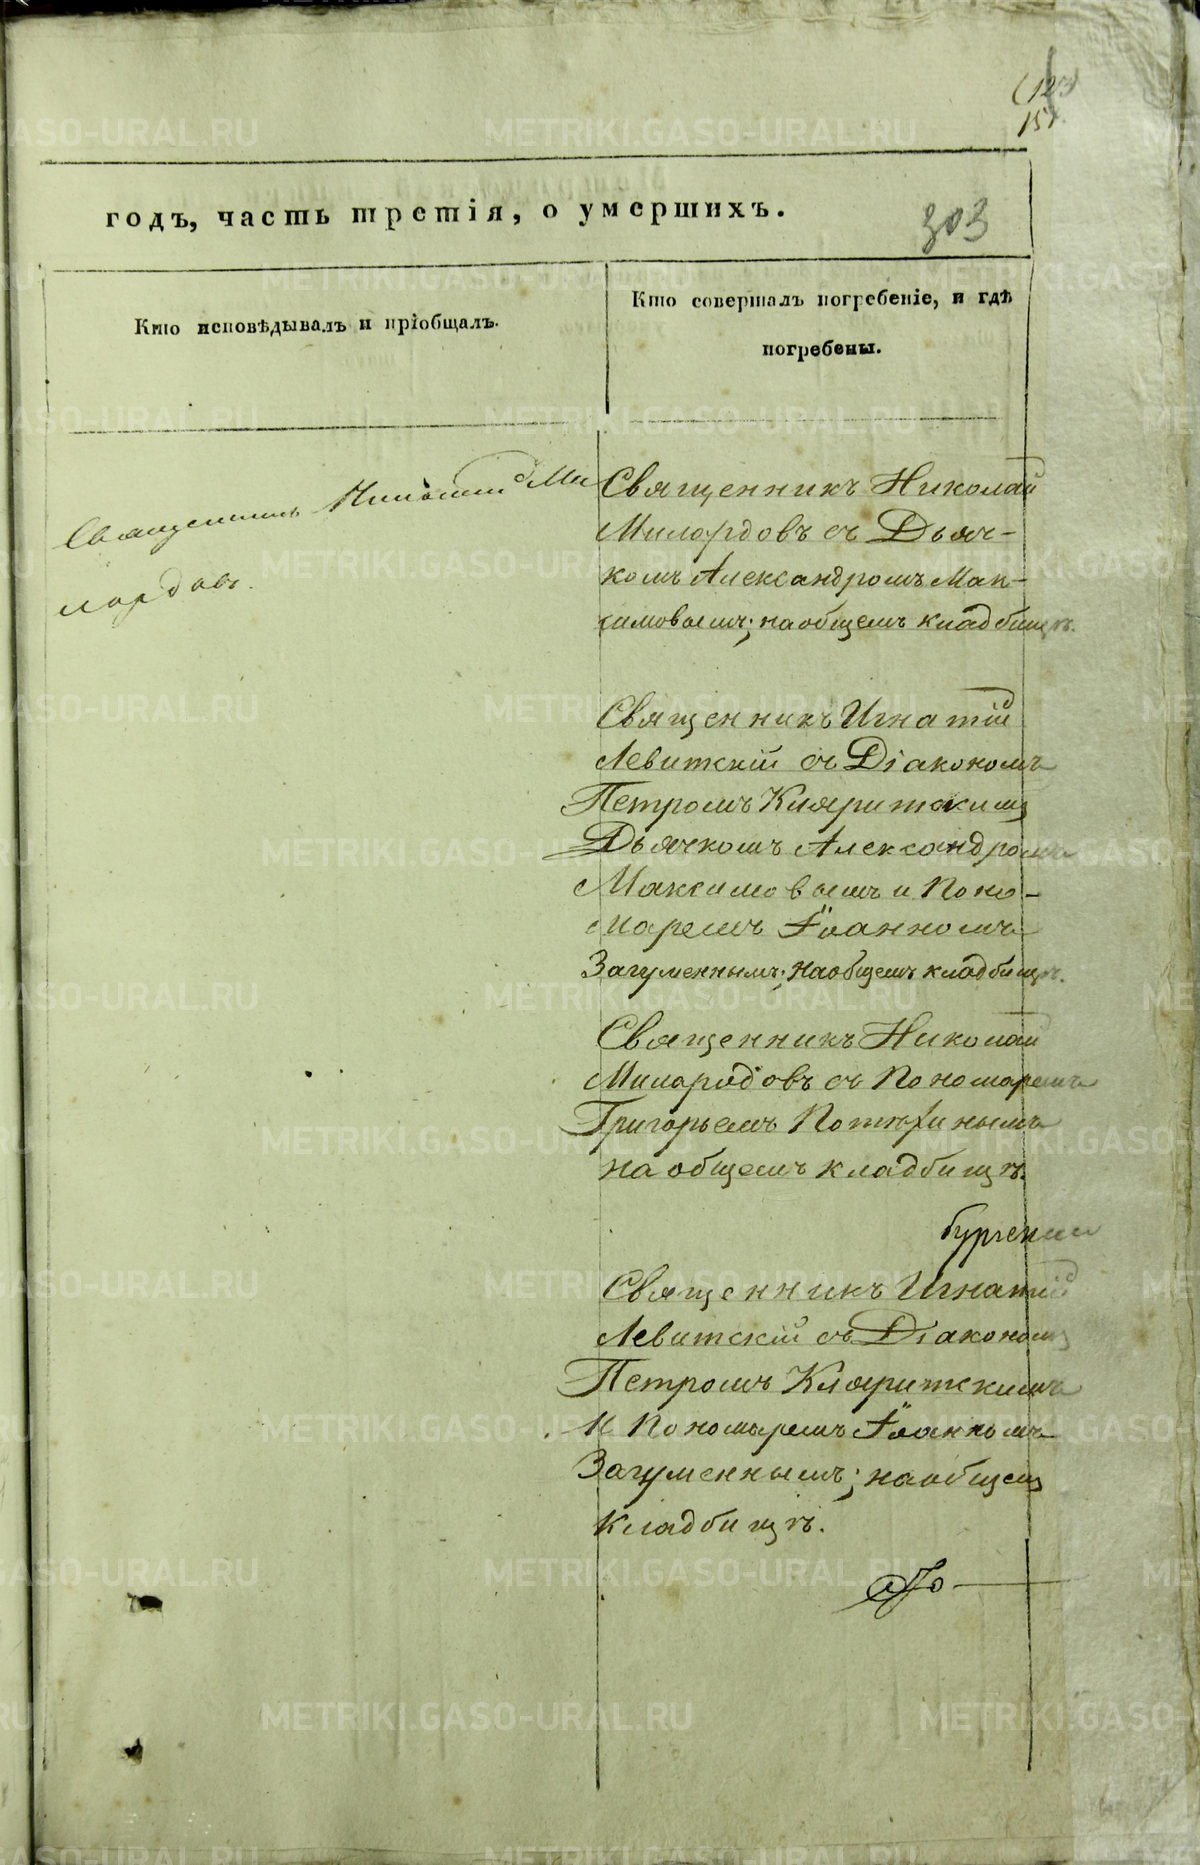 (123)
151.
годъ, часть третія, о умершихъ.
303
Кто исповѣдывалъ и пріобщалъ.
Кто совершалъ погребеніе, и гдѣ
погребены.
Священникъ Николай Ми
лордовъ.
Священникъ Николай
Милордовъ съ Дьяч-
комъ Александромъ Мак-
симовымъ; на общемъ кладбищѣ.
Священникъ Игнатій
Левитскій съ Діакономъ
Петромъ Кляритскимъ
Дьячкомъ Александромъ
Максимовымъ и Поно-
маремъ Іоанномъ
Загуменнымъ; на общемъ кладбищѣ.
Священникъ Николай
Милордовъ съ Пономаремъ
Григорьемъ Потѣхинымъ
на общемъ кладбищѣ.
Священникъ Игнатій
Левитскій съ Діакономъ
Петромъ Кляритскимъ
и Пономаремъ Іоанномъ
Загуменнымъ; на общемъ
кладбищѣ.
METRIKI.GASO-URAL.RU